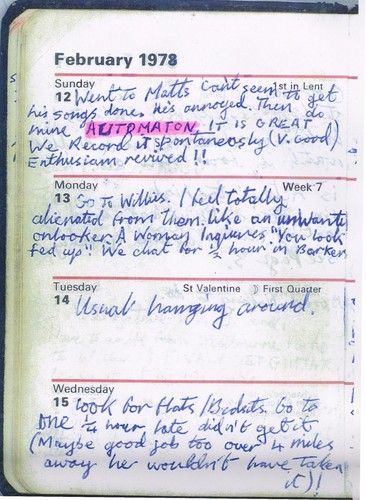 February 1978
Sunday
12 Went to Matts Can't seem to get
1st in Lent
his songs done. he's annoyed. Then do
mine AUTOMATON. IT IS GREAT
We Record it spontaneously (V. Good)
Enthusiasm revived!!
Monday
Week 7
13 Go To Willies. I feel totally
alienated from them like an unwanted
onlooker. A Woman Inquires "You look
fed up"! We chat for ½ hour in Barkers
Tuesday
St Valentine ☽ First Quarter
14 Usual hanging around.
Wednesday
15 Look for flats/Bedsits. Go to
one ¼ hour late didn't get it
(Maybe good job too over 4 miles
away her wouldn't have taken
it)!